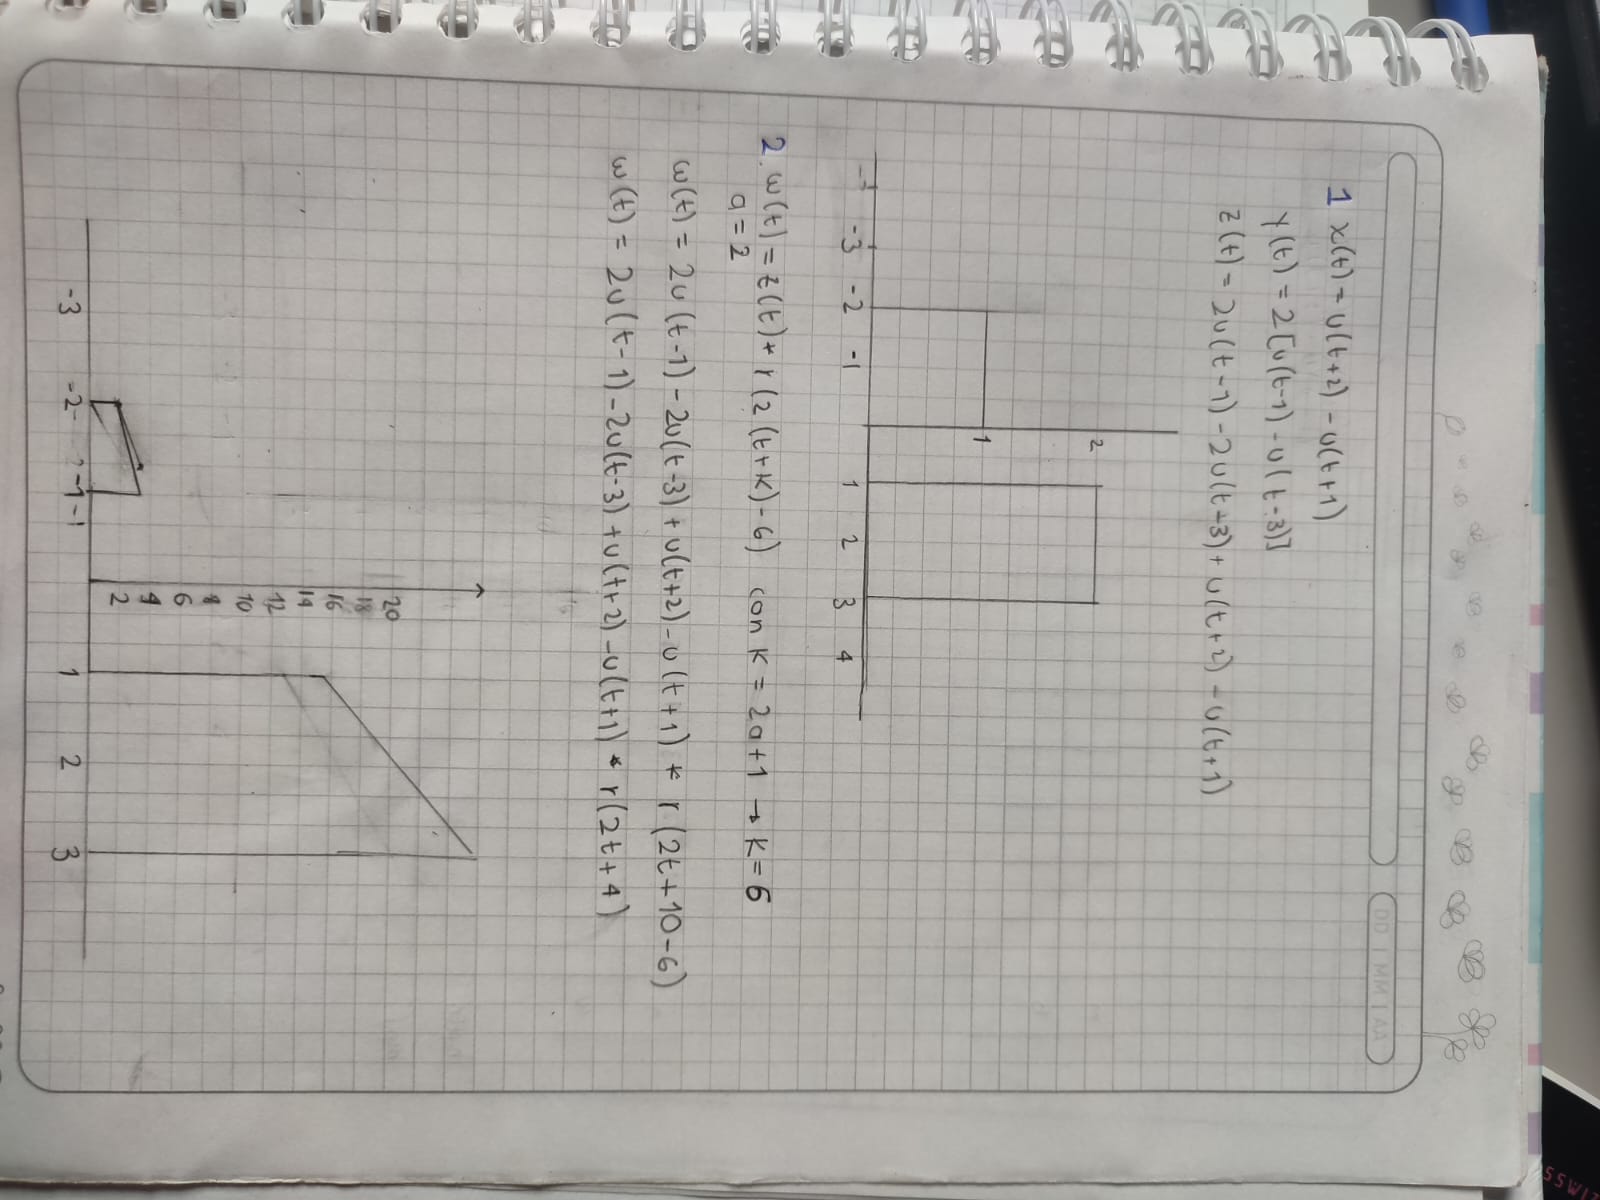 1 x(t) = u(t+2) - u(t+1)
y(t) = 2[u(t-1) - u(t-3)]
z(t) = 2u(t-1) - 2u(t+3) + u(t+2) - u(t+1)
2
1
-3 -2 -1 1 2 3 4
2. w(t) = z(t) + r(2(t+k)-6) con k = 2a+1 → k=6
a = 2
w(t) = 2u(t-1) - 2u(t-3) + u(t+2) - u(t+1) * r(2t+10-6)
w(t) = 2u(t-1) - 2u(t-3) + u(t+2) - u(t+1) * r(2t+4)
20
18
16
14
12
10
8
6
4
2
-3 -2 -1 -1 1 2 3
DD MM AA